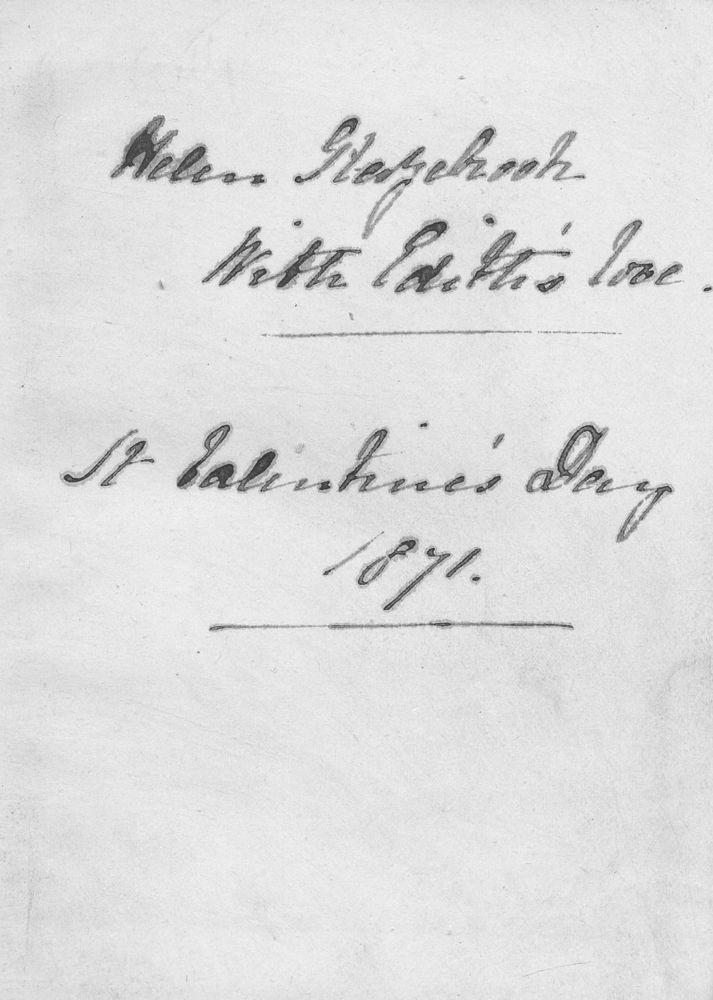 Helen Glazebrook
With Edith's love.
St Valentine's Day
1871.